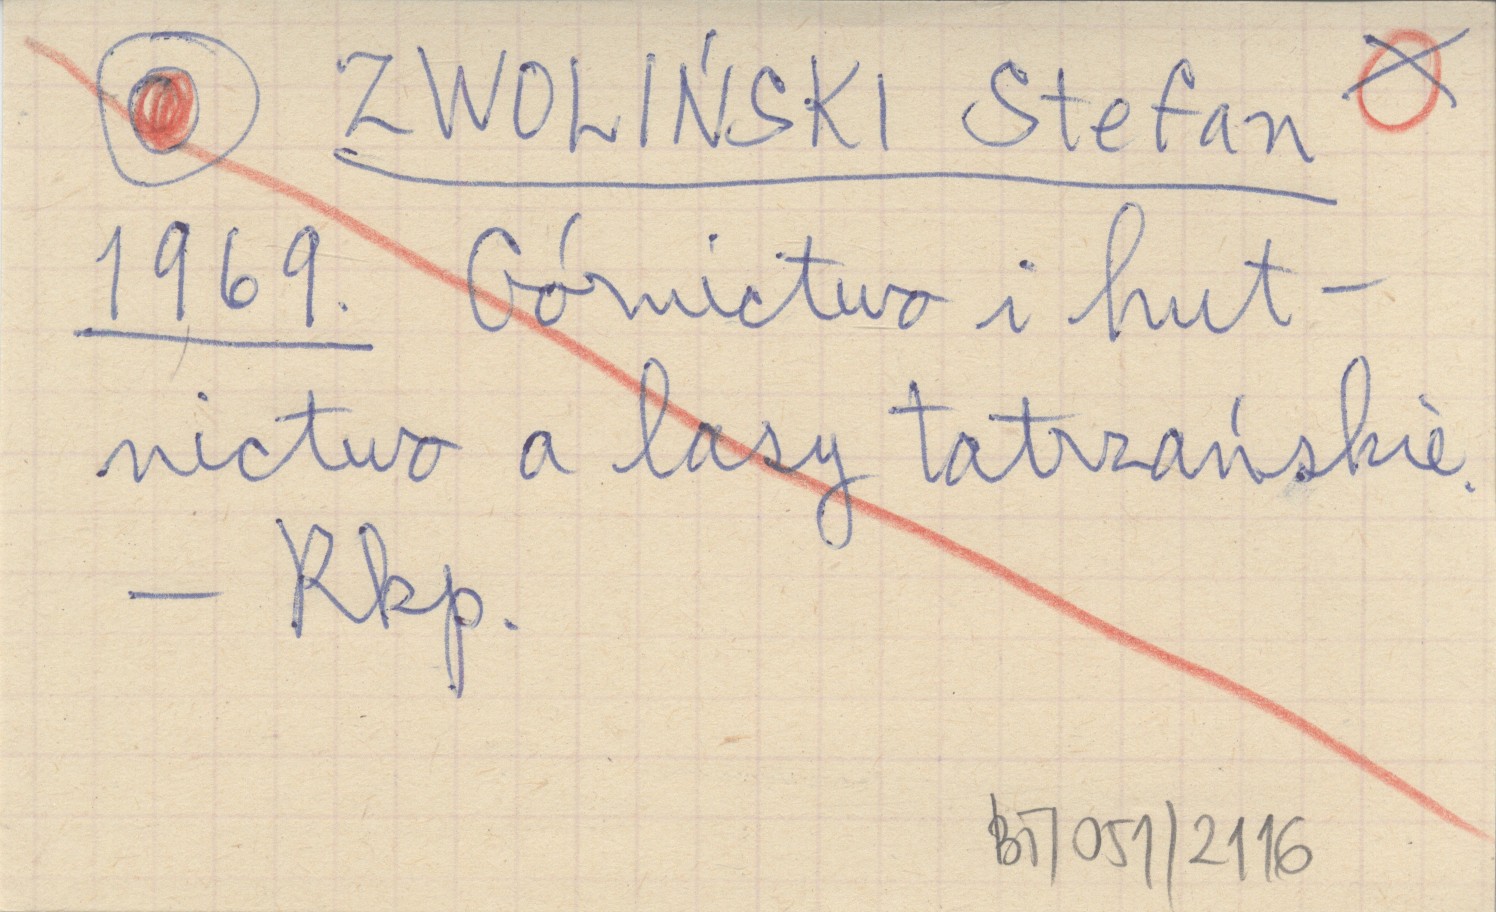 ZWOLIŃSKI Stefan
1969. Górnictwo i hut-
nictwo a lasy tatrzańskie.
– Rkp.
BT/051/2116